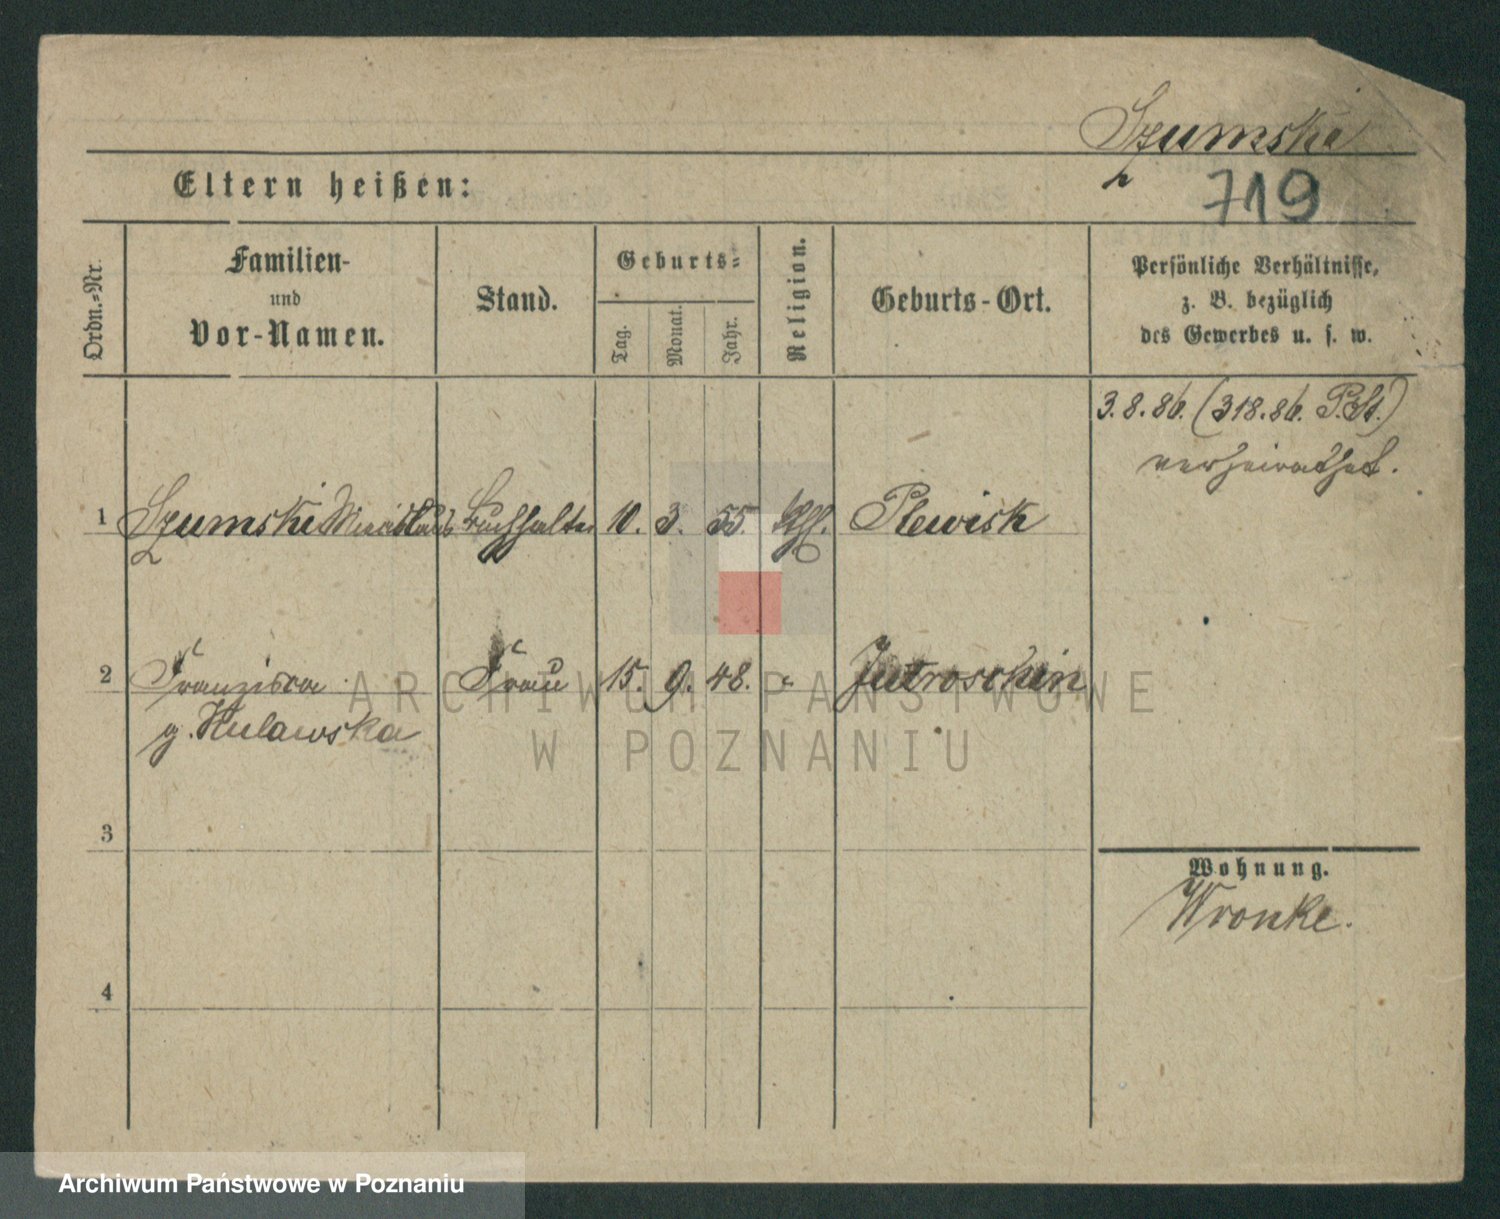 Szumski
719
Eltern heißen:
Ordn.=Nr.
Familien-
und
Vor-Namen.
Stand.
Geburts=
Tag.
Monat.
Jahr.
Religion.
Geburts-Ort.
Persönliche Verhältnisse,
z. B. bezüglich
des Gewerbes u. s. w.
3.8.86. (318.86. P.St.)
verheirathet.
1 Szumski Buchhalter 10. 3. 55. Plewisk
2 Franziska Frau 15. 9. 48. " Jutroschin
g. Kulawska
3
Wohnung.
Wronke.
4
ARCHIWUM PAŃSTWOWE
W POZNANIU
Archiwum Państwowe w Poznaniu